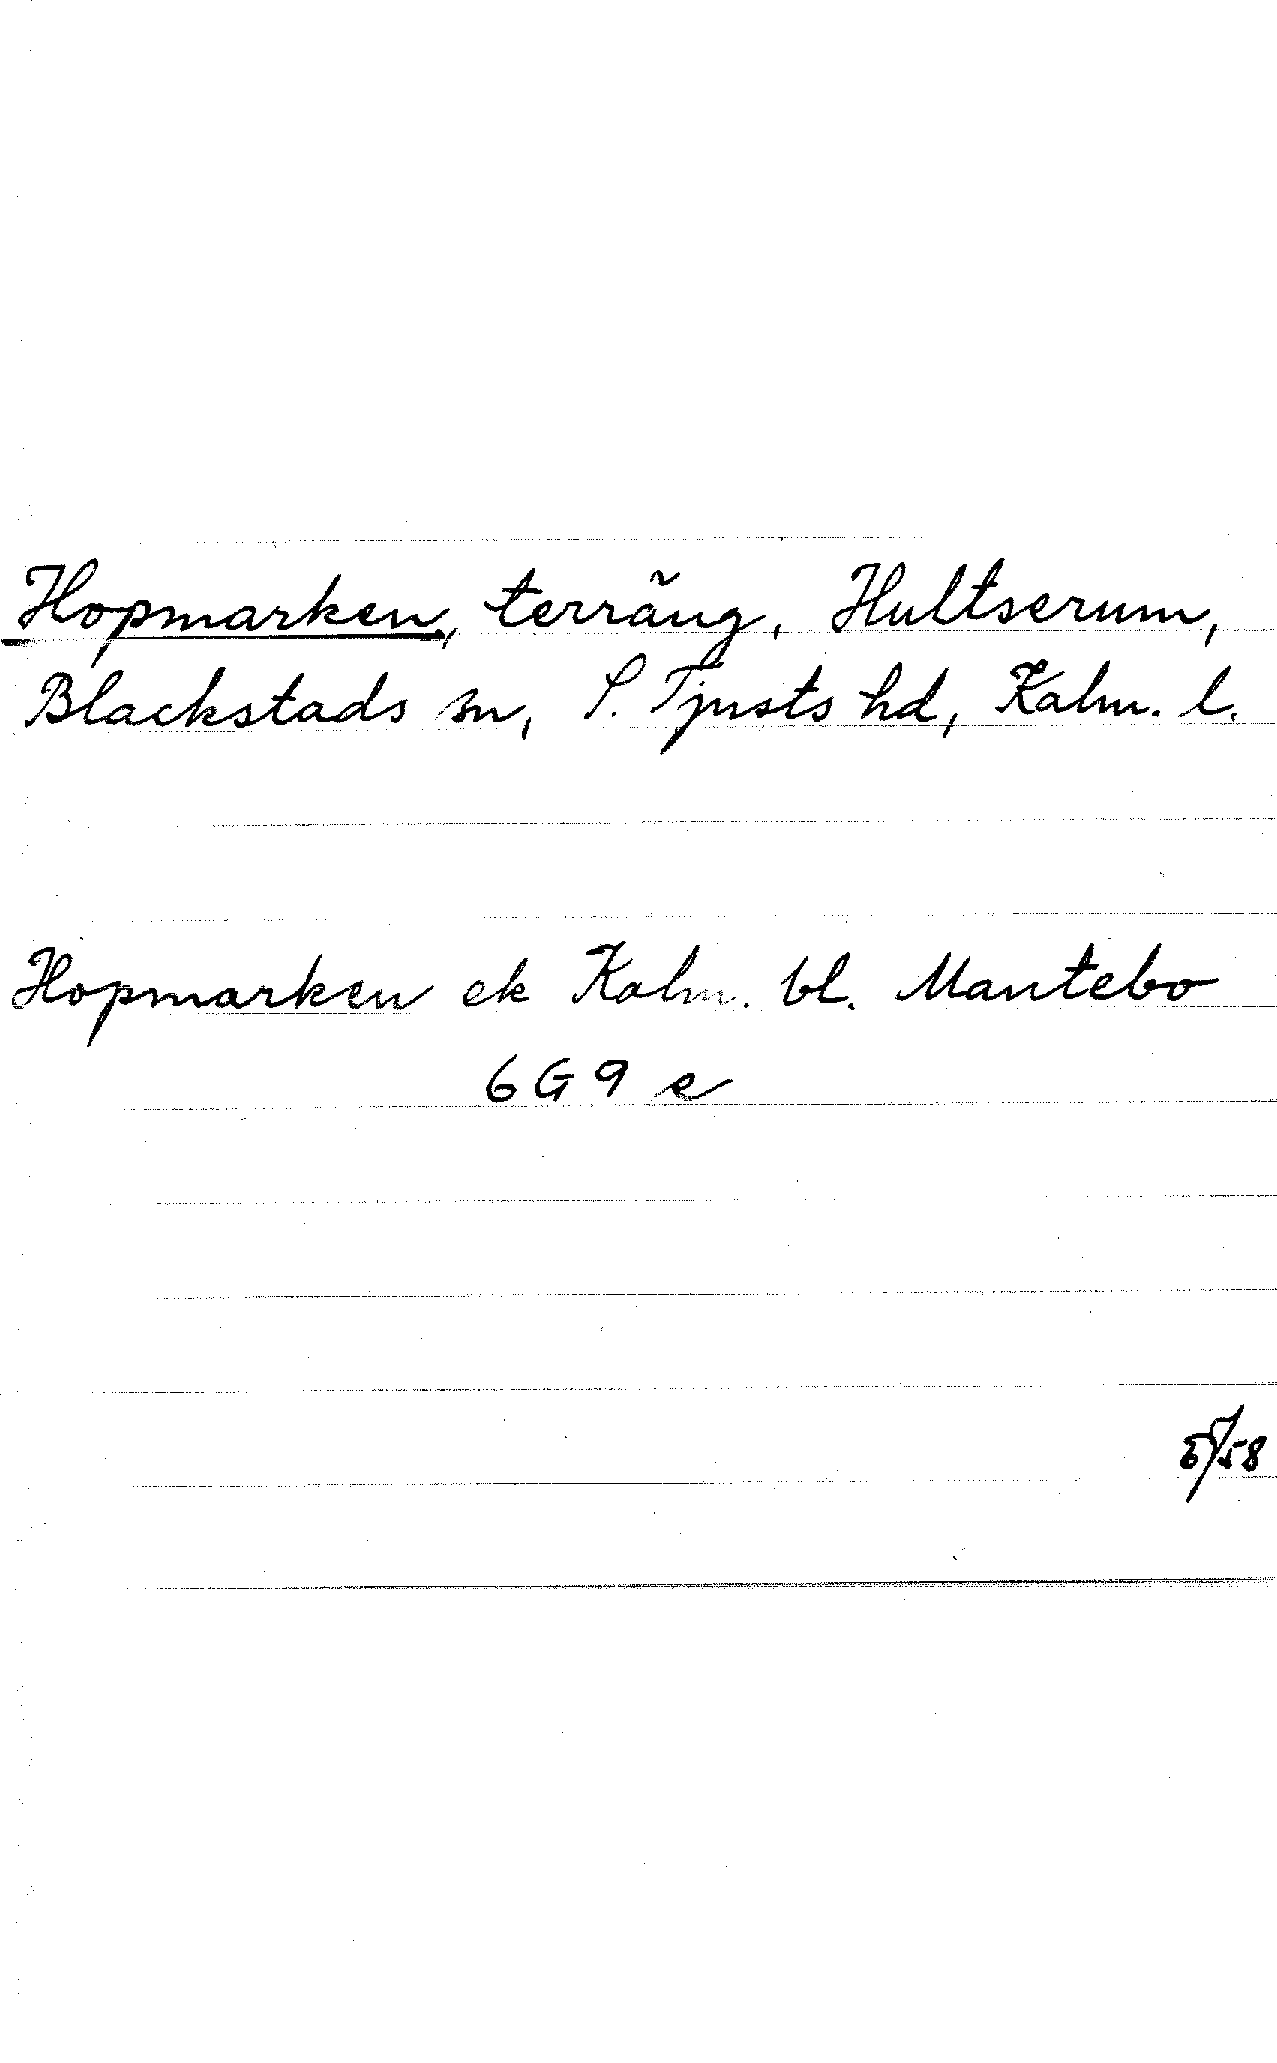 Hopmarken, terräng, Hultserum,
Blackstads sn, S. Tjusts hd, Kalm. l.
Hopmarken ek Kalm. bl. Mantebo
6G9 e